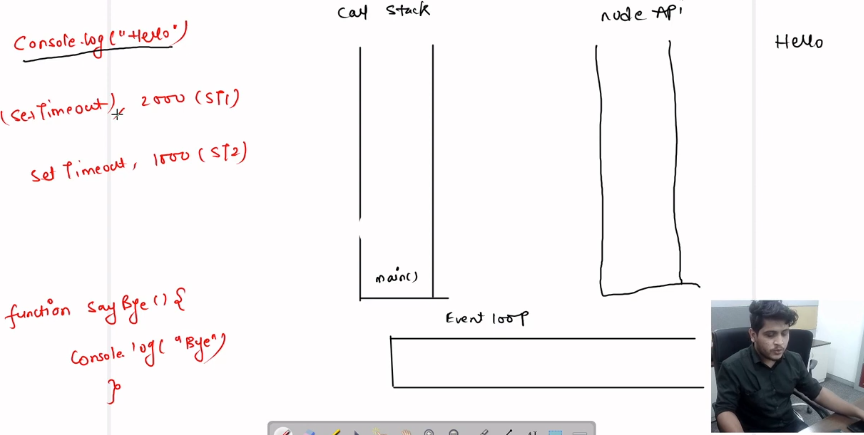 Console.log("Hello")
(SetTimeout), 2000 (ST1)
Set Timeout, 1000 (ST2)
function sayBye() {
Console.log("Bye")
}
Call Stack
main()
node API
Event loop
Hello